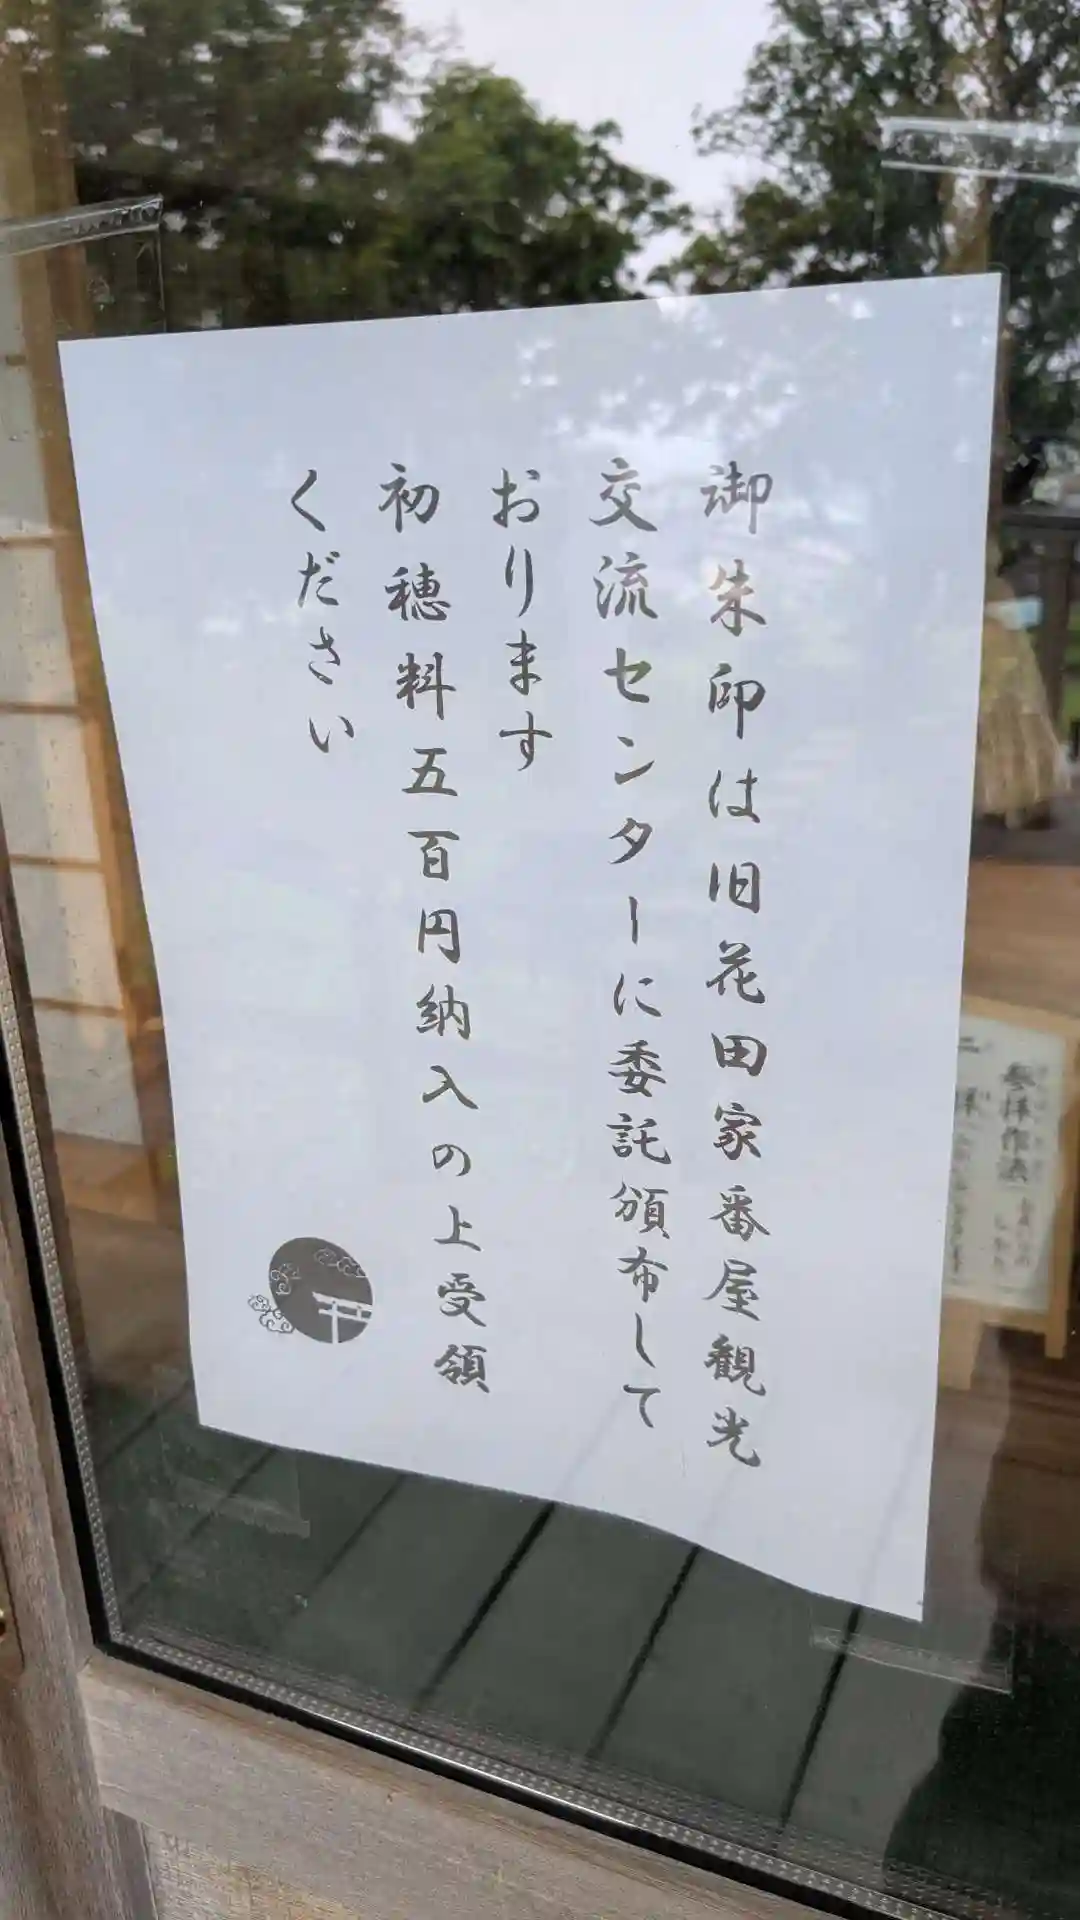 御朱印は旧花田家番屋観光
交流センターに委託頒布して
おります
初穂料五百円納入の上受領
ください
参拝作法